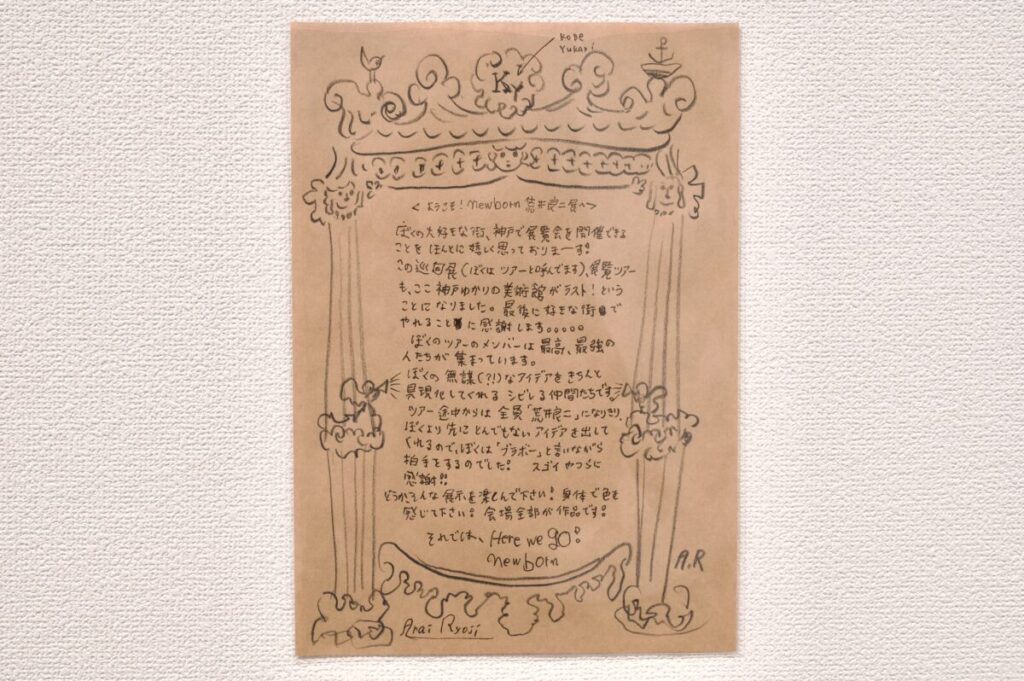 KOBE
YUKARI
KY
<ようこそ!newborn 荒井良二展へ>
ぼくの大好きな街、神戸で展覧会を開催できる
ことをほんとに嬉しく思っておりまーす!
この巡回展(ぼくはツアーと呼んでます)、展覧ツアー
も、ここ神戸ゆかりの美術館がラスト!という
ことになりました。最後に好きな街で
やれることに感謝します。。。。。
ぼくのツアーのメンバーは最高、最強の
人たちが集まっています。
ぼくの無謀(?!)なアイデアをきちんと
具現化してくれるシビレる仲間たちです。
ツアー途中からは全員「荒井良二」になりきり、
ぼくより先にとんでもないアイデアを出して
くれるので、ぼくは「ブラボー」と言いながら
拍手をするのでした! スゴイやつらに
感謝!!
どうかそんな展示を楽しんで下さい!身体で色を
感じて下さい!会場全部が作品です!
それでは、Here we go!
newborn
A.R
Arai Ryoji